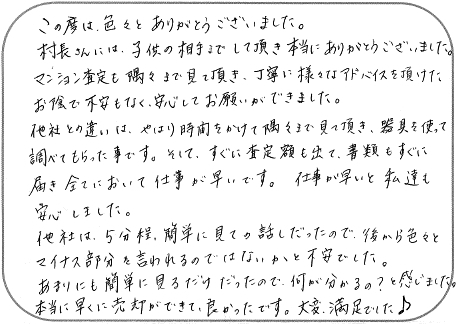 この度は、色々とありがとうございました。
村長さんには、子供の相手までして頂き本当にありがとうございました。
マンション査定も隅々まで見て頂き、丁寧に様々なアドバイスを頂けた
お陰で不安もなく、安心してお願いができました。
他社との違いは、やはり時間をかけて隅々まで見て頂き、器具を使って
調べてもらった事です。そして、すぐに査定額も出て、書類もすぐに
届き全てにおいて仕事が早いです。仕事が早いと私達も
安心しました。
他社は、5分程、簡単に見ての話しだったので、後から色々と
マイナス部分を言われるのではないかと不安でした。
あまりにも簡単に見るだけだったので、何が分かるの?と感じました。
本当に早くに売却ができて、良かったです。大変、満足でした♪